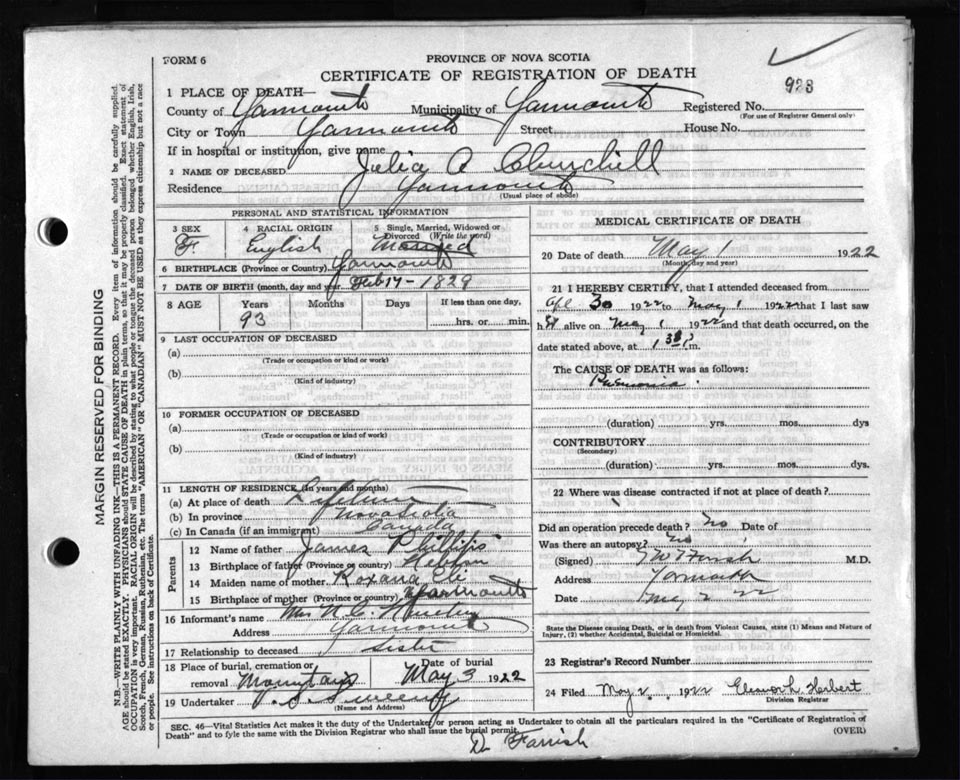 923
FORM 6
PROVINCE OF NOVA SCOTIA
CERTIFICATE OF REGISTRATION OF DEATH
1 PLACE OF DEATH—
County of Yarmouth Municipality of Yarmouth Registered No.
(For use of Registrar General only)
City or Town Yarmouth Street House No.
If in hospital or institution, give name
2 NAME OF DECEASED Julia A Churchill
Residence Yarmouth
(Usual place of abode)
PERSONAL AND STATISTICAL INFORMATION
3 SEX 4 RACIAL ORIGIN 5 Single, Married, Widowed or Divorced (Write the word)
F. English Married
6 BIRTHPLACE (Province or Country) Yarmouth
7 DATE OF BIRTH (month, day and year) Feb 17 - 1829
8 AGE Years Months Days If less than one day,
93 hrs. or min.
9 LAST OCCUPATION OF DECEASED
(a)
(Trade or occupation or kind of work)
(b)
(Kind of industry)
10 FORMER OCCUPATION OF DECEASED
(a)
(Trade or occupation or kind of work)
(b)
(Kind of industry)
11 LENGTH OF RESIDENCE (In years and months)
(a) At place of death Lifetime
(b) In province Nova Scotia
(c) In Canada (if an immigrant) Canada
Parents
12 Name of father James Phillips
13 Birthplace of father (Province or country) Hebron
14 Maiden name of mother Roxana
15 Birthplace of mother (Province or country) Yarmouth
16 Informant's name Mrs N. C.
Address Yarmouth
17 Relationship to deceased Sister
18 Place of burial, cremation or removal Mountain Date of burial May 3 1922
19 Undertaker V. S. Sweeney
(Name and Address)
MEDICAL CERTIFICATE OF DEATH
20 Date of death May 1 1922
(Month, day and year)
21 I HEREBY CERTIFY, that I attended deceased from
Apl 30 1922 to May 1 1922 that I last saw
h er alive on May 1 1922 and that death occurred, on the
date stated above, at 1 30 P m.
The CAUSE OF DEATH was as follows:
Pneumonia.
(duration) yrs. mos. dys
CONTRIBUTORY
(Secondary)
(duration) yrs. mos. dys.
22 Where was disease contracted if not at place of death?
Did an operation precede death? No Date of
Was there an autopsy? No
(Signed) Farish M.D.
Address Yarmouth
Date May 2 22
State the Disease causing Death, or in death from Violent Causes, state (1) Means and Nature of Injury, (2) whether Accidental, Suicidal or Homicidal.
23 Registrar's Record Number
24 Filed May 2, 1922 Eleanor L. Herbert
Division Registrar
SEC. 46—Vital Statistics Act makes it the duty of the Undertaker or person acting as Undertaker to obtain all the particulars required in the "Certificate of Registration of
Death" and to fyle the same with the Division Registrar who shall issue the burial permit.
(OVER)
Dr Farish
MARGIN RESERVED FOR BINDING
N.B.—WRITE PLAINLY WITH UNFADING INK—THIS IS A PERMANENT RECORD. Every item of information should be carefully supplied.
AGE should be stated EXACTLY. PHYSICIANS should STATE CAUSE OF DEATH in plain terms, so that it may be properly classified. Exact statement of
OCCUPATION is very important. RACIAL ORIGIN will be described by stating to what people or tongue the deceased person belonged whether English, Irish,
Scotch, French, German, Russian, Ruthenian, etc. The terms "AMERICAN" OR "CANADIAN" MUST NOT BE USED as they express citizenship but not a race
or people. See instructions on back of Certificate.